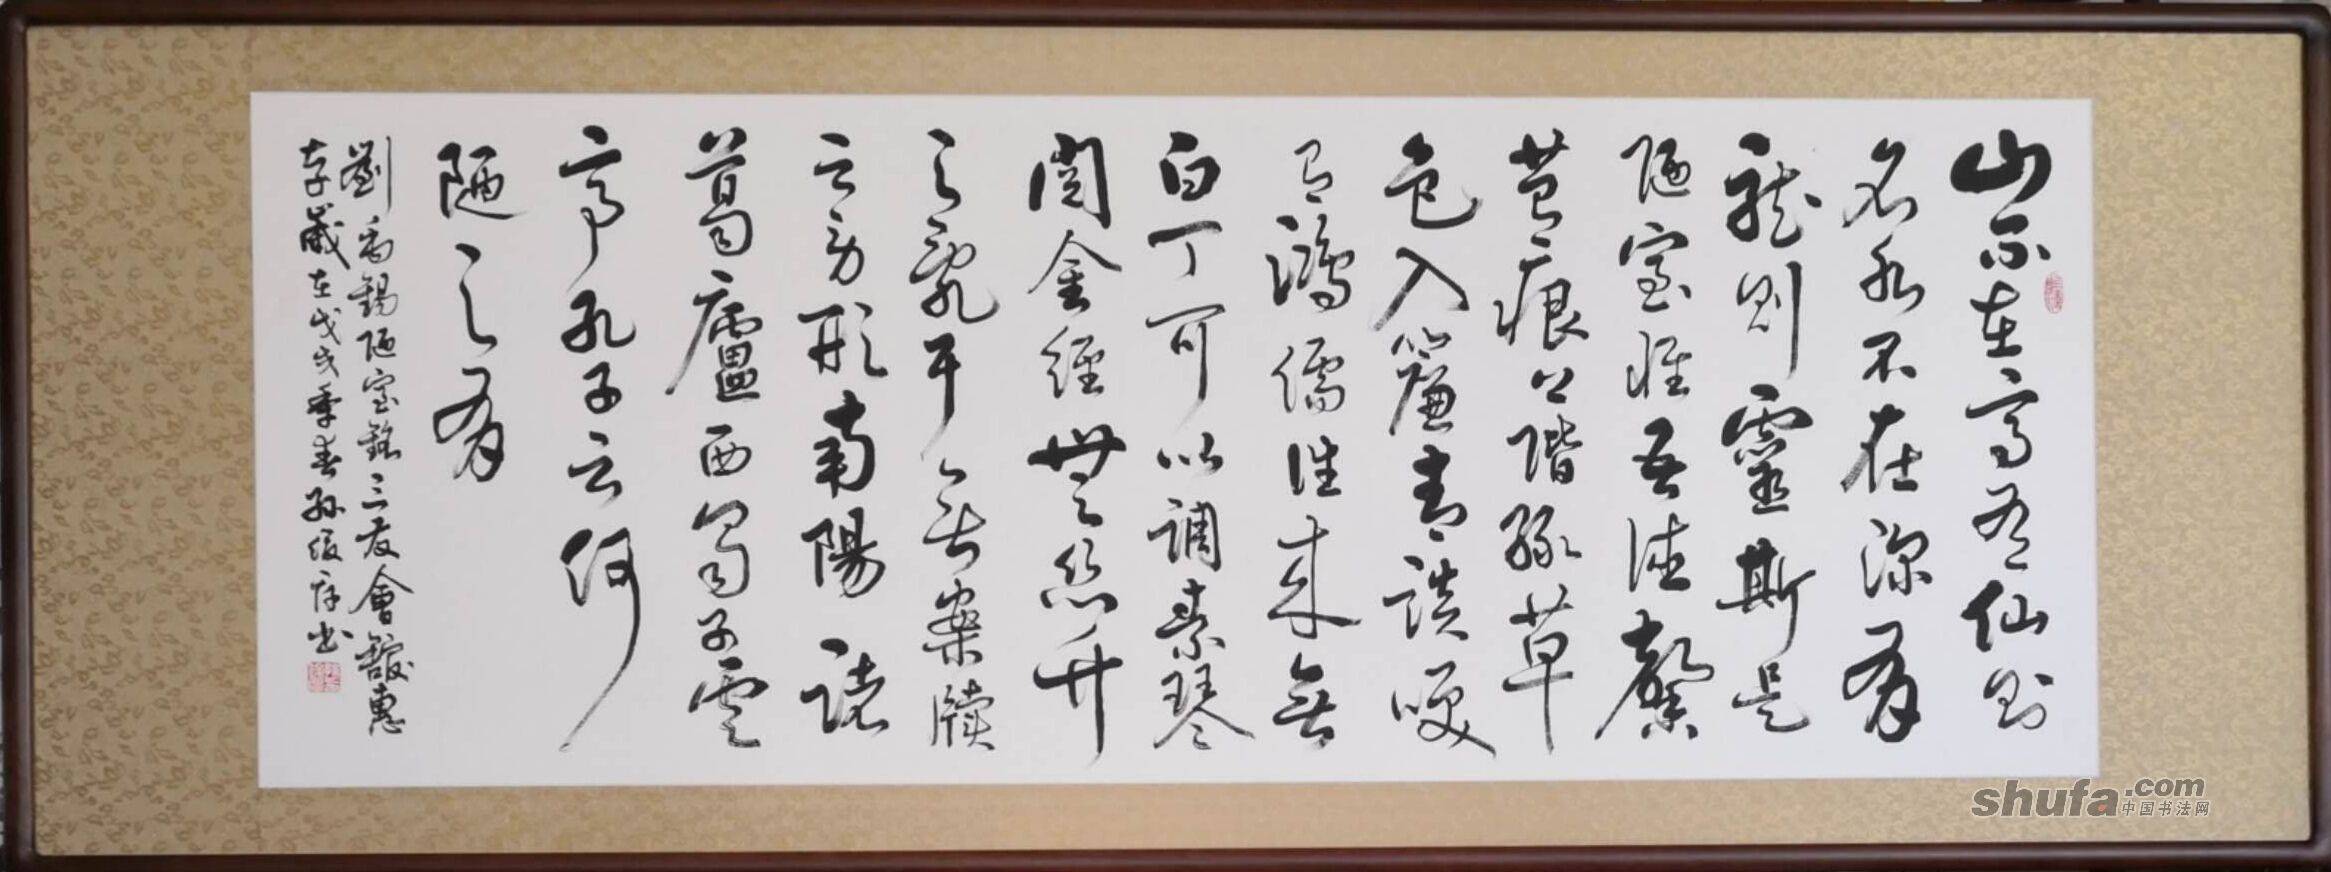 山不在高有仙則
名水不在深有
龍則靈斯是
陋室惟吾德馨
苔痕上階緑草
色入簾青談咲
有鴻儒往来無
白丁可以調素琴
閲金經無絲竹
之亂耳無案牘
之勞形南陽諸
葛廬西蜀子雲
亭孔子云何
陋之有
劉禹錫陋室銘三友會館惠
存歲在戊戌季春孫俊书
shufa.com
中国书法网